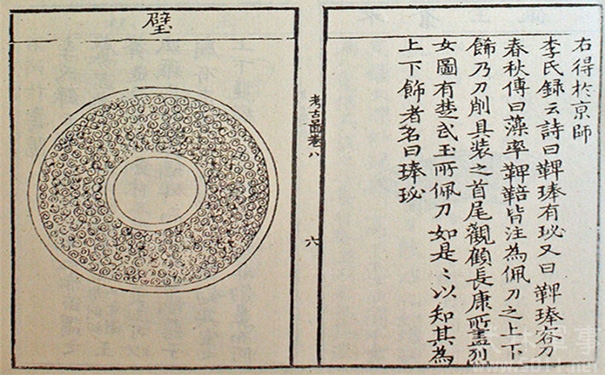 右得於京師
李氏録云詩曰鞞琫有珌又曰鞞琫容刀
春秋傳曰藻率鞞鞛皆注為佩刀之上下
飾乃刀削具装之首尾觀顧長康所畫列
女圖有楚武王所佩刀如是〻以知其為
上下飾者名曰琫珌
考古啚卷八
六
璧